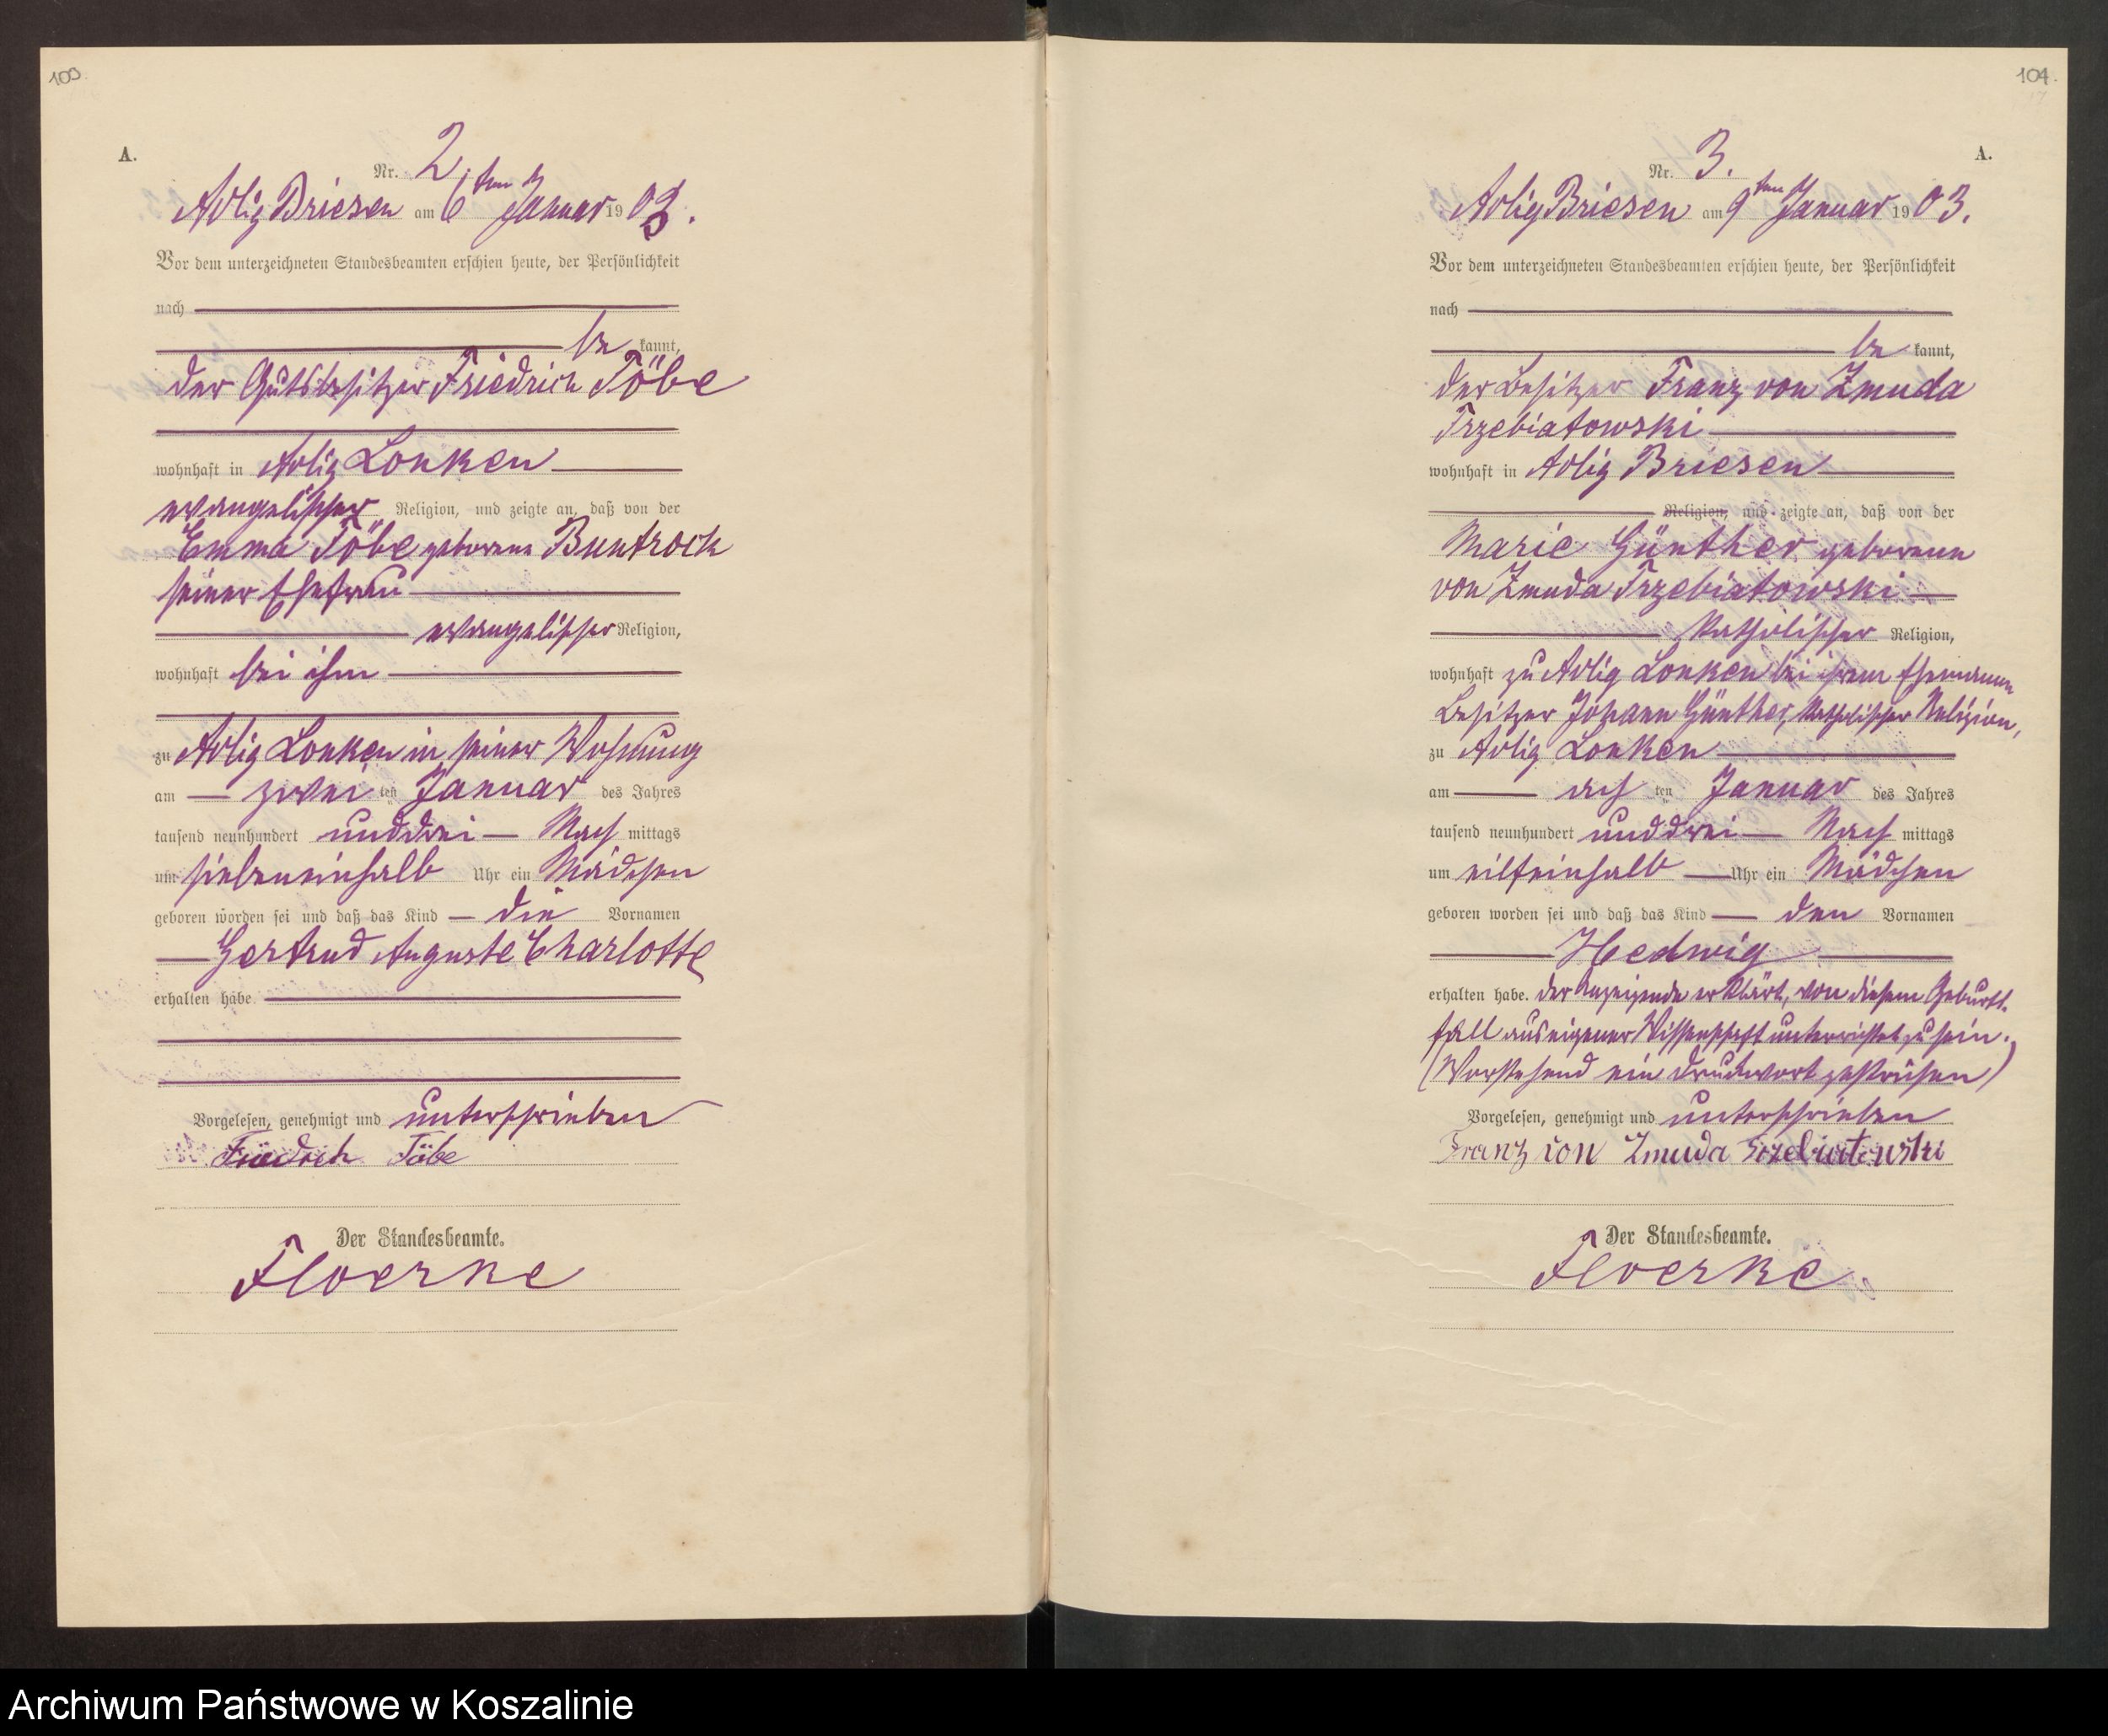 103.
A.
Nr. 2.
Adlig Briesen am 6ten Januar 1903.
Vor dem unterzeichneten Standesbeamten erschien heute, der Persönlichkeit
nach
be kannt,
der Gutsbesitzer Friedrich Töbe
wohnhaft in Adlig Lonken
evangelischer Religion, und zeigte an, daß von der
Emma Töbe geborene Buntrock
seiner Ehefrau
evangelischer Religion,
wohnhaft bei ihm
zu Adlig Lonken in seiner Wohnung
am zwei ten Januar des Jahres
tausend neunhundert und drei Nach mittags
um siebeneinhalb Uhr ein Mädchen
geboren worden sei und daß das Kind die Vornamen
Gertrud Auguste Charlotte
erhalten habe.
Vorgelesen, genehmigt und unterschrieben
Friedrich Töbe
Der Standesbeamte.
Floerke
104.
A.
Nr. 3.
Adlig Briesen am 9ten Januar 1903.
Vor dem unterzeichneten Standesbeamten erschien heute, der Persönlichkeit
nach
be kannt,
der Besitzer Franz von Zmuda
Trzebiatowski
wohnhaft in Adlig Briesen
Religion, und zeigte an, daß von der
Marie Günther geborene
von Zmuda Trzebiatowski
katholischer Religion,
wohnhaft zu Adlig Lonken bei ihrem Ehemanne
Besitzer Johann Günther, katholischer Religion,
zu Adlig Lonken
am ach ten Januar des Jahres
tausend neunhundert und drei Nach mittags
um eilfeinhalb Uhr ein Mädchen
geboren worden sei und daß das Kind den Vornamen
Hedwig
erhalten habe. Der Anzeigende erklärt, von diesem Geburts-
fall aus eigener Wissenschaft unterrichtet zu sein.
(Vorstehend ein Druckwort gestrichen)
Vorgelesen, genehmigt und unterschrieben
Franz von Zmuda Trzebiatowski
Der Standesbeamte.
Floerke
Archiwum Państwowe w Koszalinie